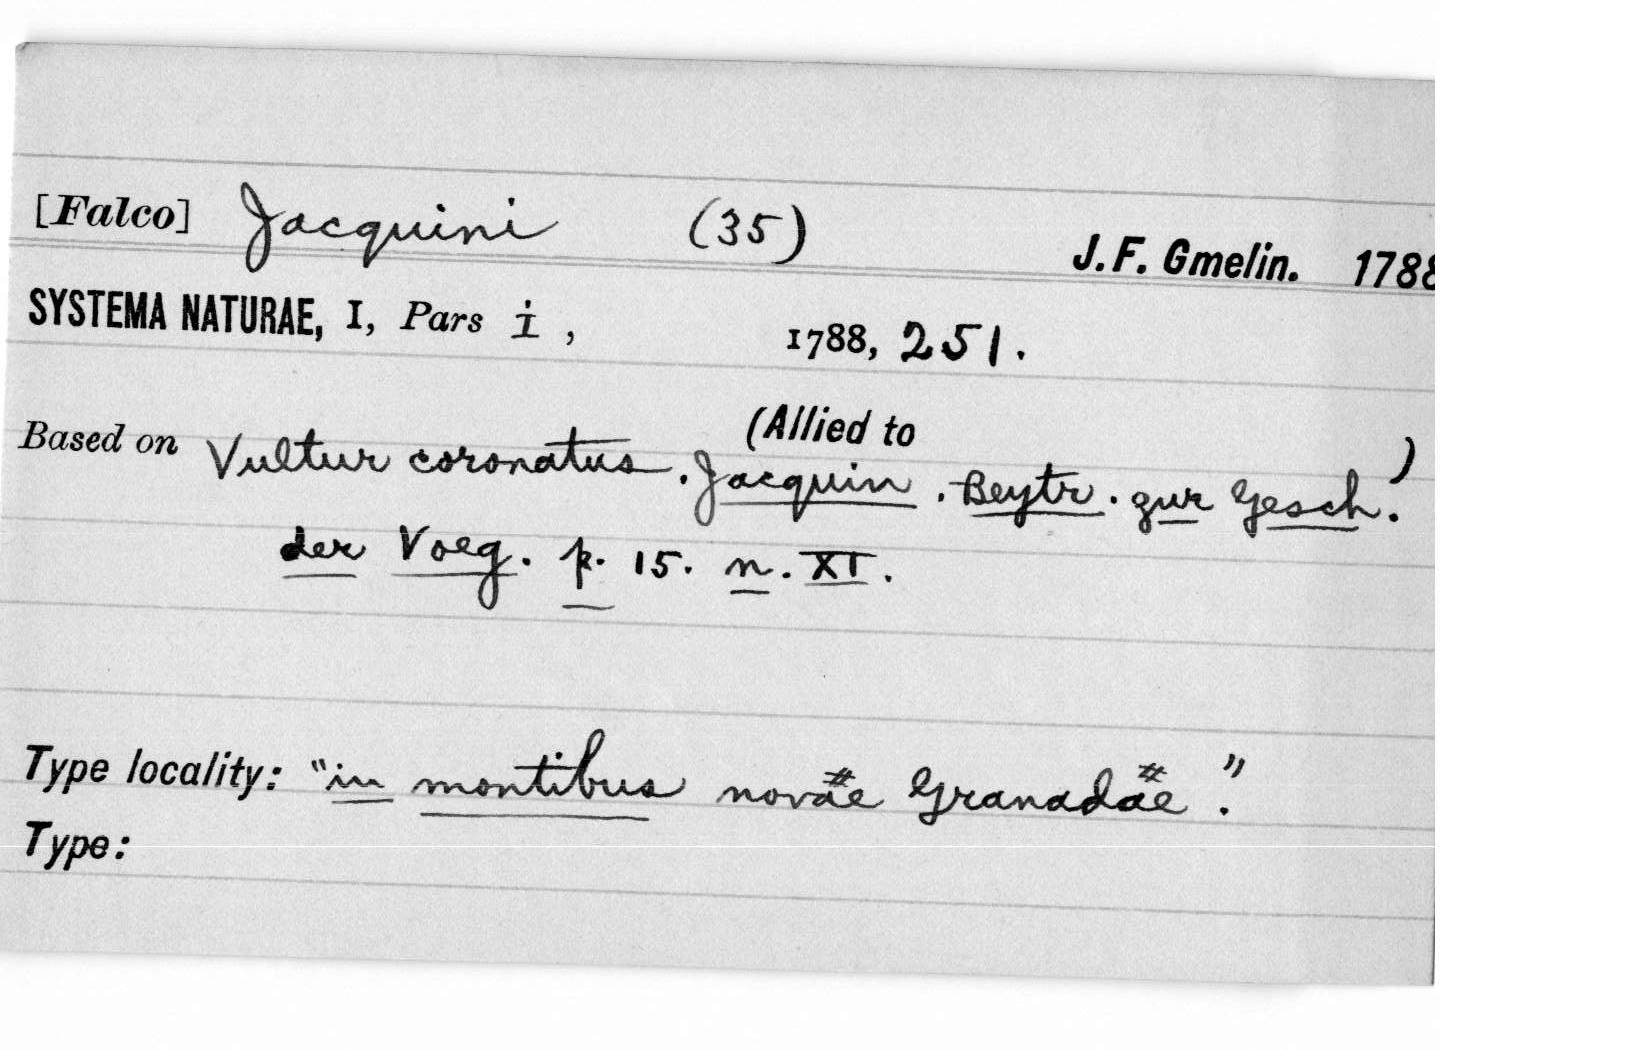 [Falco] Jacquini (35) J.F. Gmelin. 1788
SYSTEMA NATURAE, I, Pars i, 1788, 251.
(Allied to )
Based on Vultur coronatus. Jacquin. Beytr. zur Gesch.
der Voeg. p. 15. n. XI.
Type locality: "in montibus novae Granadae."
Type: